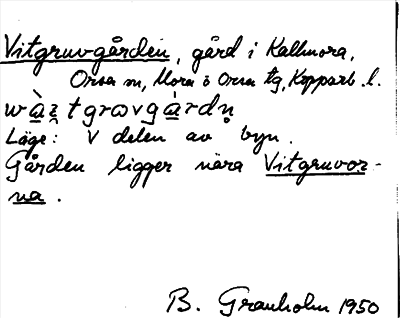 Vitgruvgården, gård i Kallmora,
Orsa sn, Mora o Orsa tg, Kopparb. l.
Läge: V delen av byn.
Gården ligger nära Vitgruvor-
na.
B. Granholm 1950